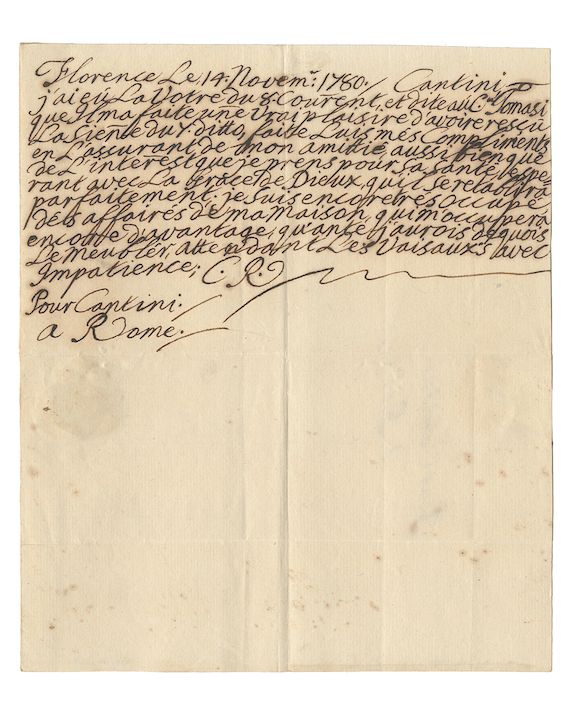 Florence Le, 14. Novem.r 1780. / Cantini
j'ai eü La Votre du 8 Courent, et dite au C.te Tomasi
que il m'a faite une vrai plaisire d'avoire resçü
La Siene du 7 ditto, faite Luis mes Compliments
en L'assurant de mon amitié aussi bien que
de L'interest que je prens pour sa santé, espe-
rant avec La Grace de Dieux, qu'il se retablira
parfaitement; je suis encore tres occupé
des affaires de ma maison, qui m'occupera
encore d'avantage, quante j'aurois de quois
Le meubler, attendant Les Vaisaux's avec
Impatience; C. R.
Pour Cantini.
a Rome.